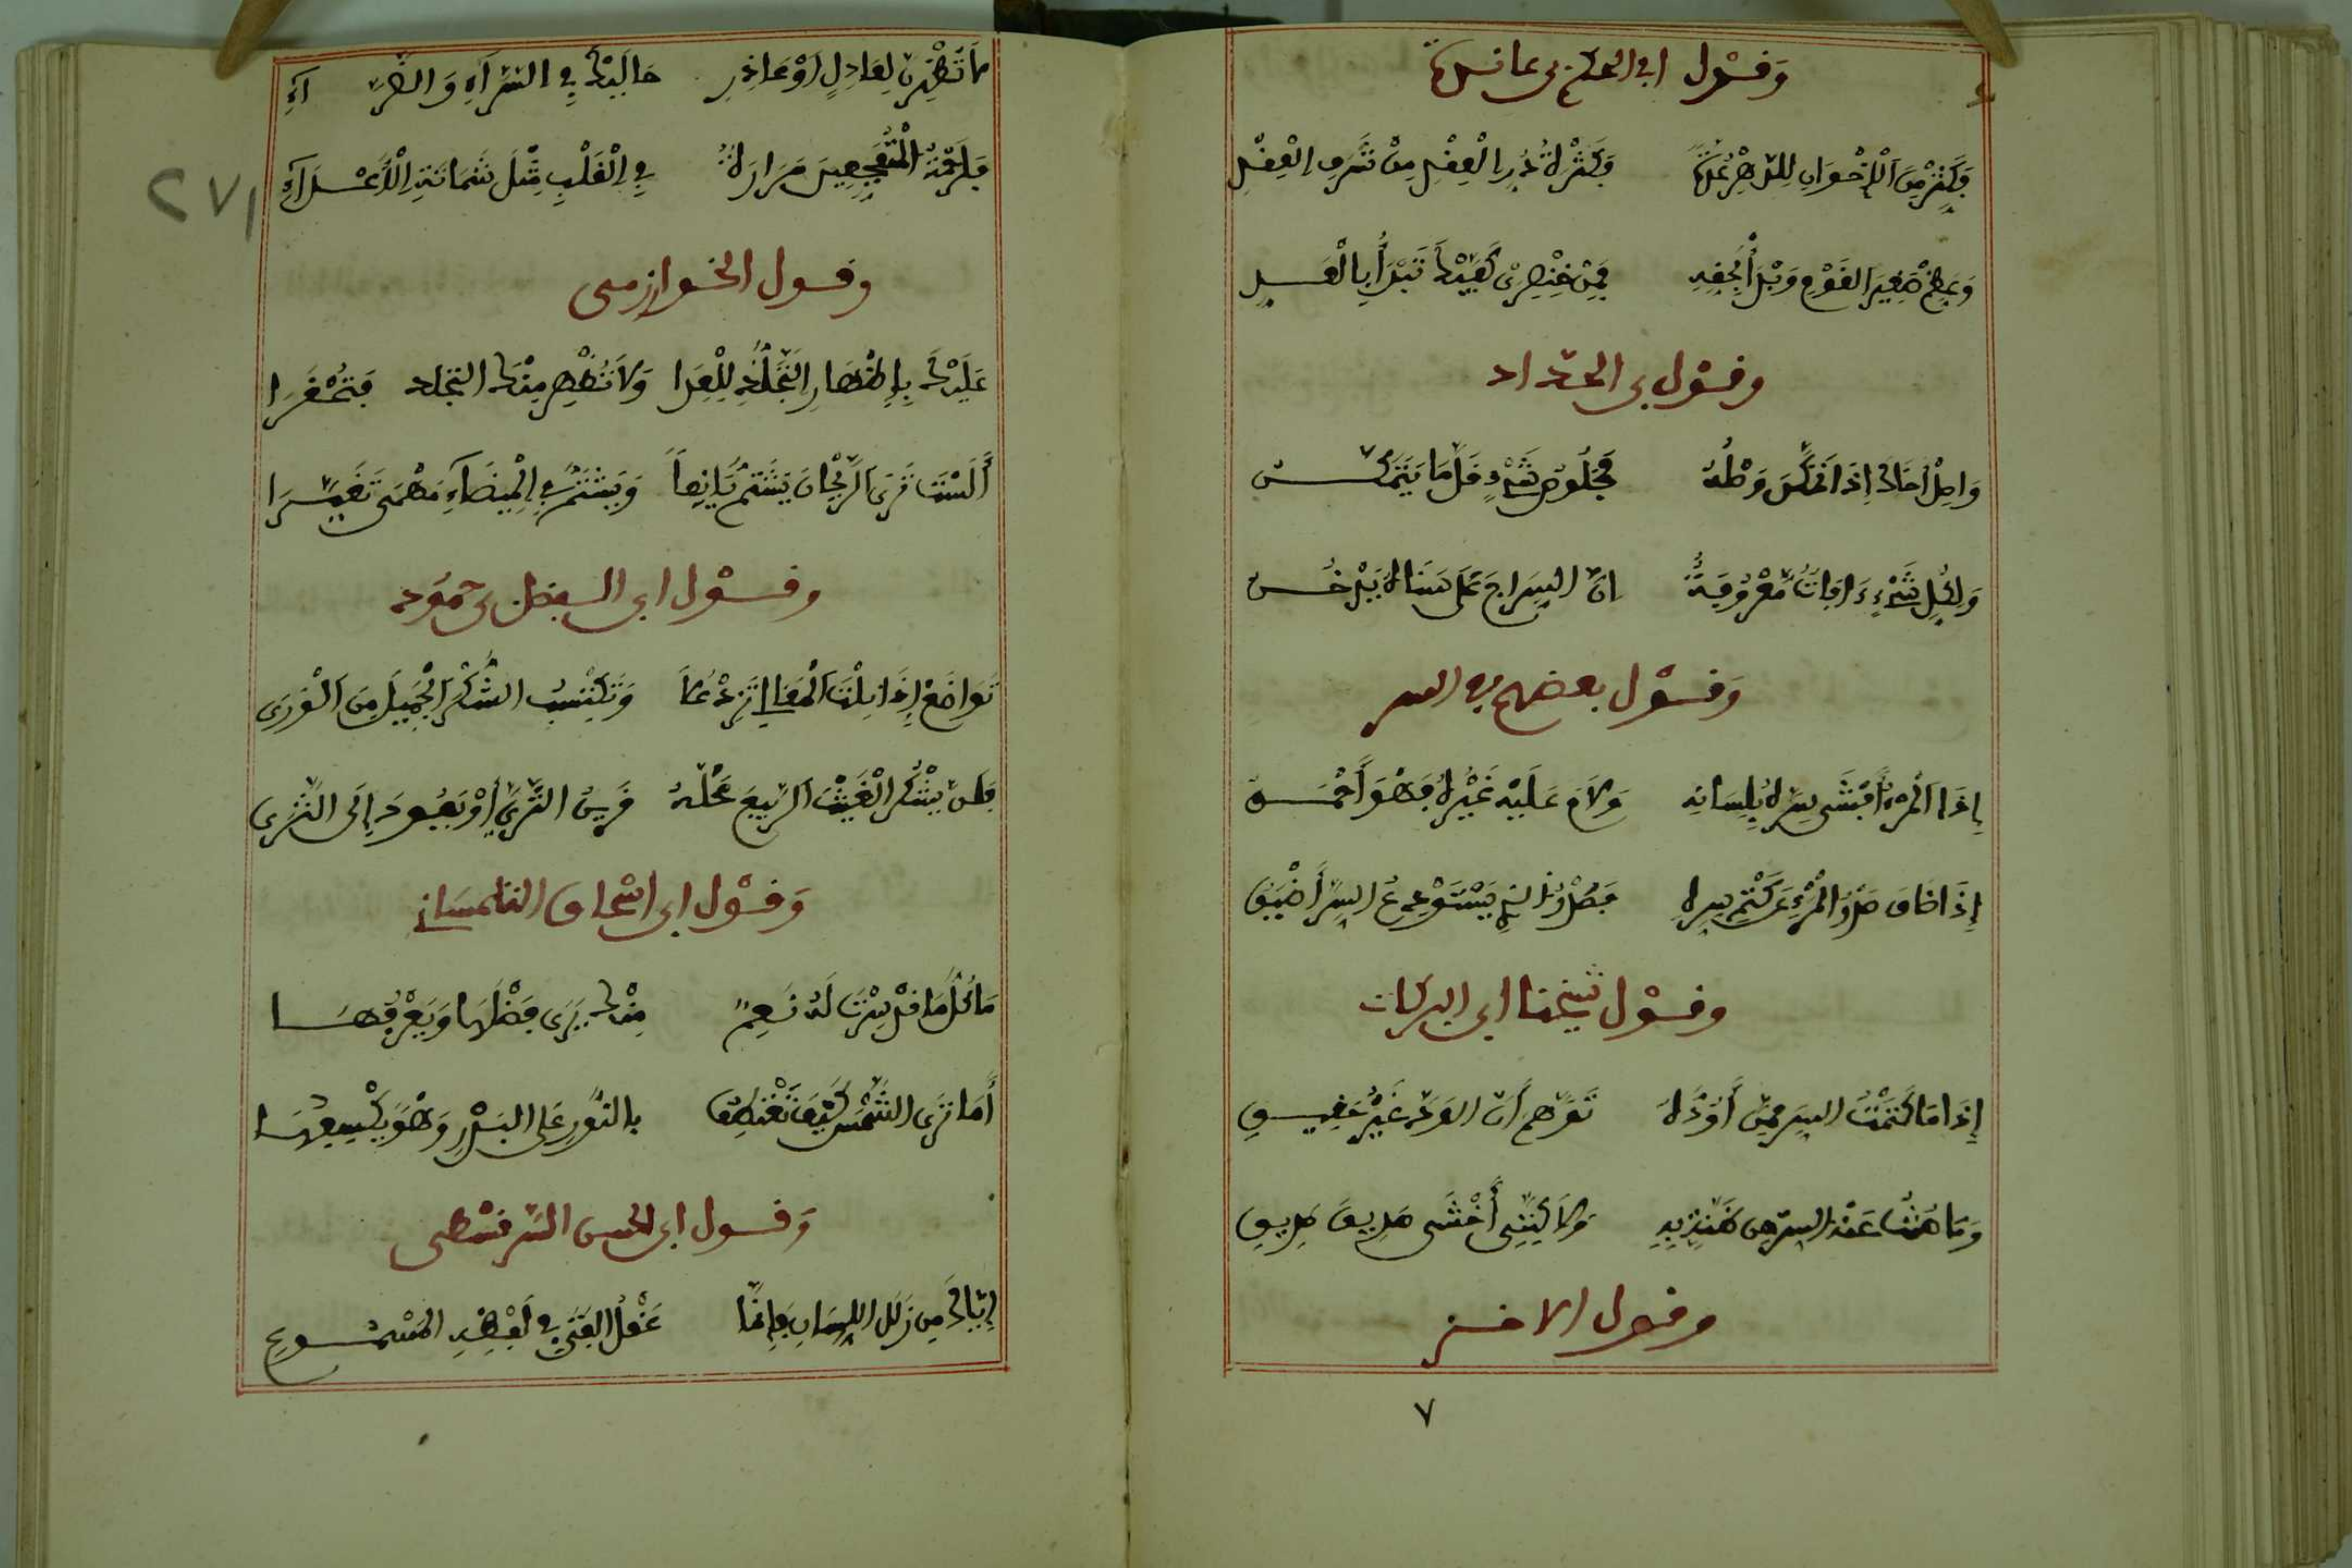 وقول ابي الحكم بن عانسة
وكثر من الاخوان للدهر عدة وكثرة در العقد من شرف العقد
وعظم صغير القوم وابدأ بحقه فمن خنصري كفيك تبدأ بالعد
وقول بن الحداد
واصل أخاك إذا تمكن وصله فخلوص شيء قلما يتمكن
ولكل شيء ءافات معروفة ان السراج على سناه يدخن
وقول بعضهم في السر
إذا المرء أفشى سره بلسانه ولام عليه غيره فهو أحمق
إذا ضاق صدر المرء عن كتم سره فصدر الذي يستودع السر أضيق
وقول شيخنا ابي البركات
إذا ما كتمت السر عمن أوده توهم أن الود غير حقيق
وما هنت عنه السر من ضنة به ولاكنني أخشى صديق صديق
وقول الاخر
٧
لا تظهرن لعاذل أو عاذر حاليك في السراء والضراء
فلرحمة المتفجعين مرارة في القلب مثل شماتة الأعداء
٢٧١
وقول الخوارزمي
عليك بإظهار التجلد للعدا ولا تظهر منك التجلد فتحقرا
ألست ترى الريحان يشتم يانعا ويشتم في الميضاء مهمى تغيرا
وقول ابي الفضل بن حمود
تواضع إذا نلت المعالي تزد علا وتكتسب الشكر الجميل من الورى
فلن يشكر الغيث الربيع محله قريب الثرى أو يعود إلى الثرى
وقول ابي اسحاق التلمساني
ما كل ما قد سرت له نعم منك يرى فضلها ويعرفها
أما ترى الشمس كيف تعطف بالنور على البدر وهو يكسفها
وقول ابي الحسن السرقسطي
إياك من زلل اللسان فإنما عقل الفتى في لفظه المسموع